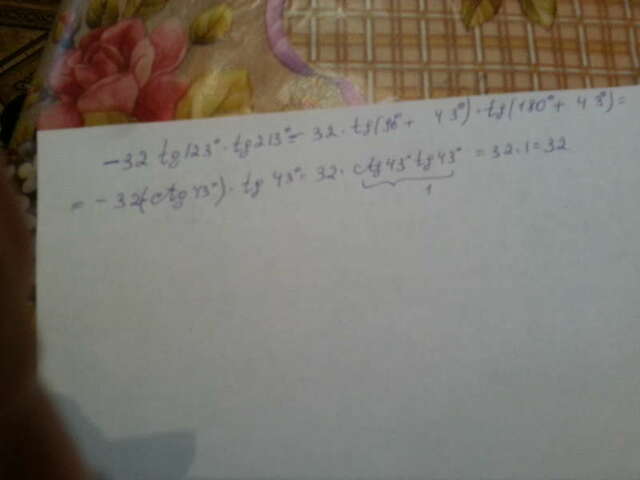 -32 tg123°·tg213°=-32·tg(90°+43°)·tg(180°+43°)=
=-32(-ctg43°)·tg43°=32·ctg43°tg43°=32·1=32
1